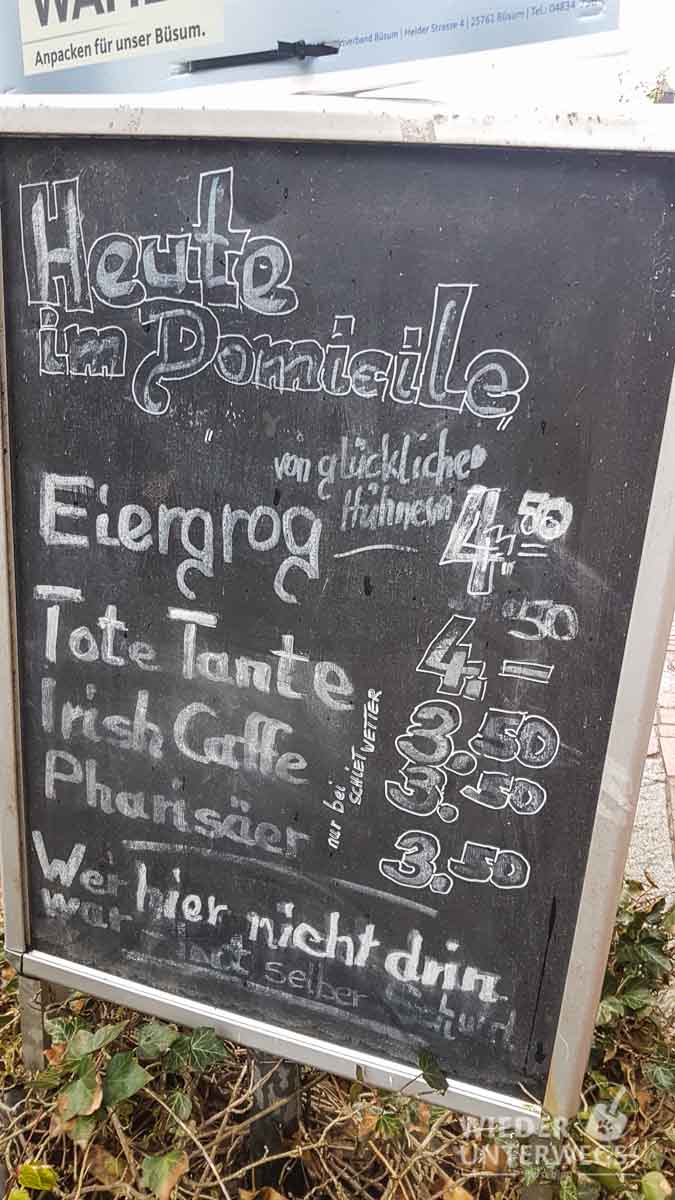 Anpacken für unser Büsum.
verband Büsum | Heider Strasse 4 | 25761 Büsum | Tel.: 04834
Heute
im Domicile
von glücklichen
Hühnern
Eiergrog 4.50
Tote Tante 4.50
Irish Caffe 3.50
3.50
Pharisäer 3.50
nur bei
SCHIET WETTER
Wer hier nicht drin
war hat selber Schuld
WIEDER
UNTERWEGS